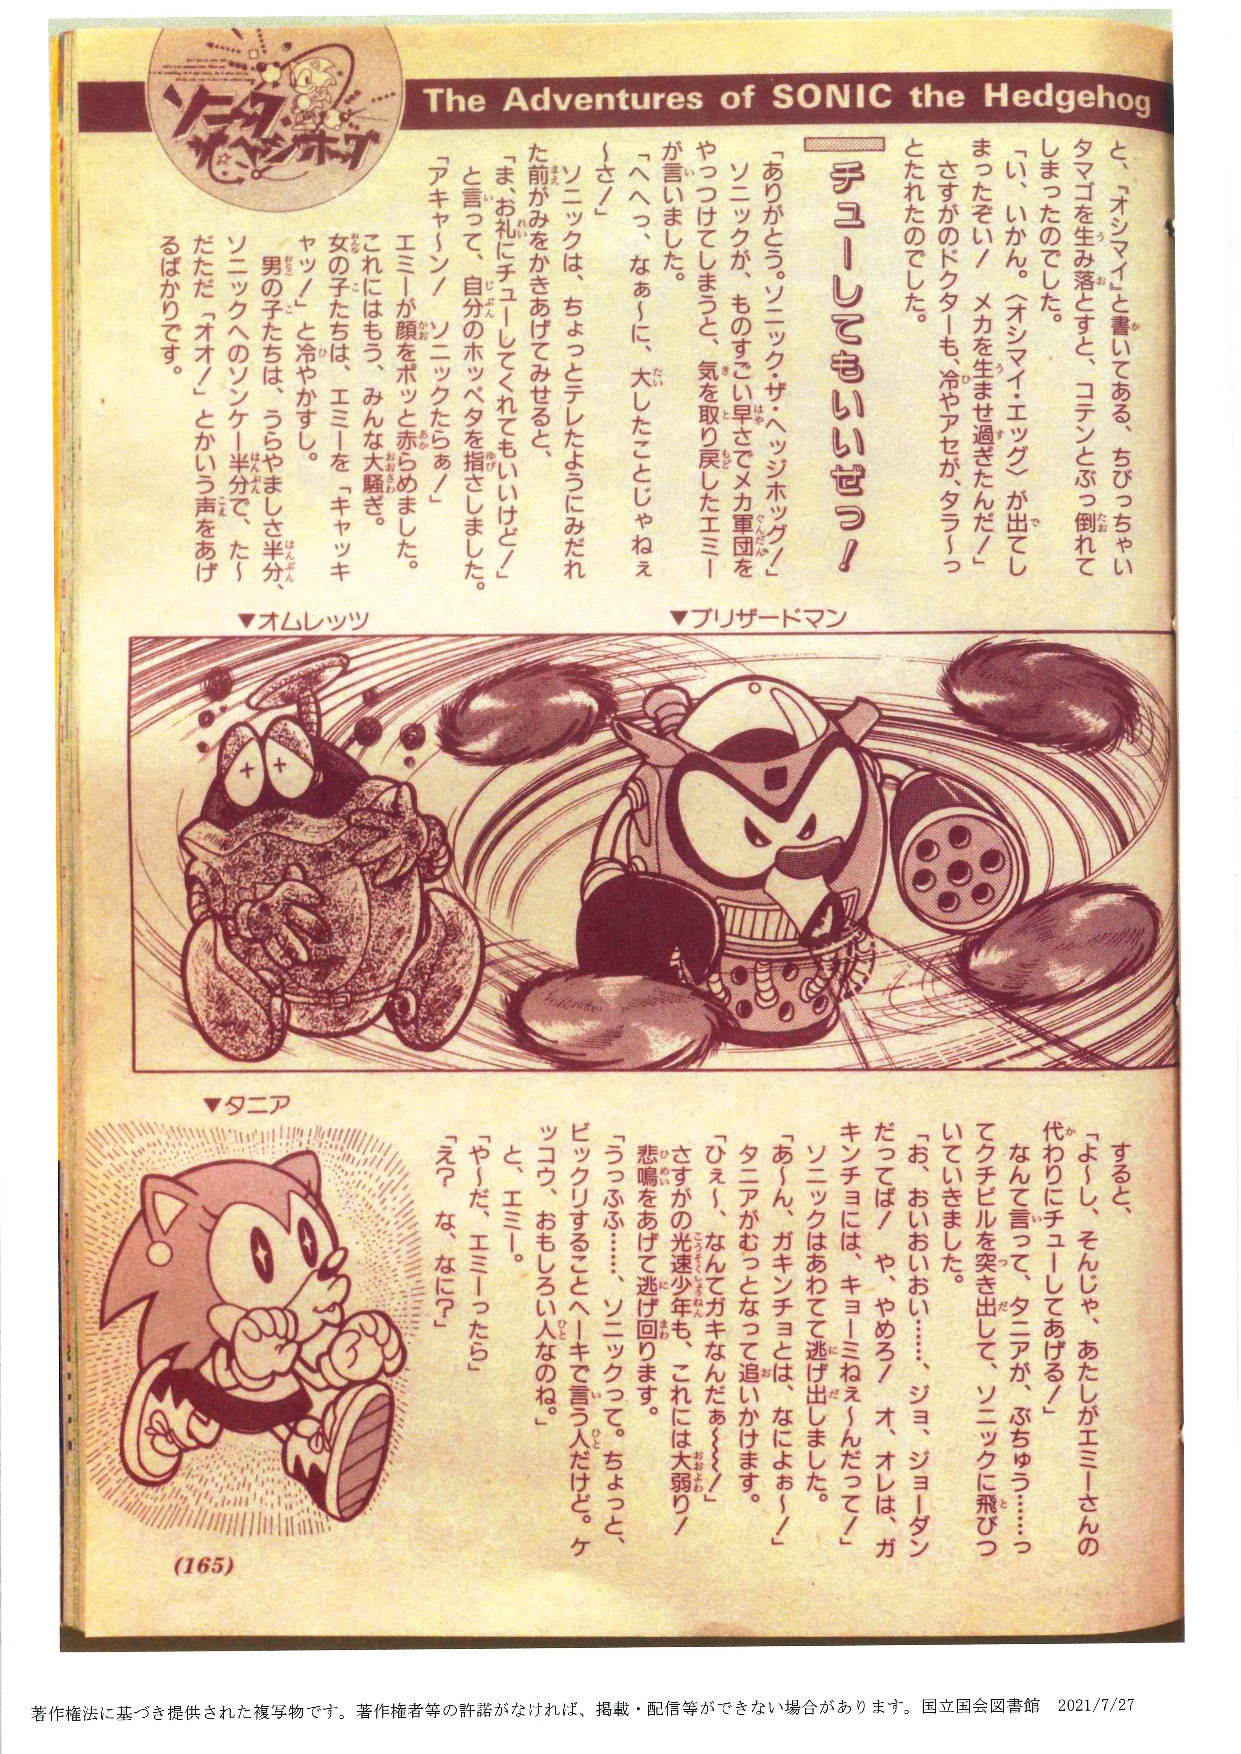 ソニック
ザ・ヘッジホッグ
The Adventures of SONIC the Hedgehog
と、『オシマイ』と書いてある、ちびっちゃい
タマゴを生み落とすと、コテンとぶっ倒れて
しまったのでした。
「い、いかん。〈オシマイ・エッグ〉が出てし
まったぞい！　メカを生ませ過ぎたんだ！」
さすがのドクターも、冷やアセが、タラ〜っ
とたれたのでした。
チューしてもいいぜっ！
「ありがとう。ソニック・ザ・ヘッジホッグ！」
ソニックが、ものすごい早さでメカ軍団を
やっつけてしまうと、気を取り戻したエミー
が言いました。
「へへっ、なぁ〜に、大したことじゃねぇ
〜さ！」
ソニックは、ちょっとテレたようにみだれ
た前がみをかきあげてみせると、
「ま、お礼にチューしてくれてもいいけど！」
と言って、自分のホッペタを指さしました。
「アキャ〜ン！　ソニックたらぁ！」
エミーが顔をポッと赤らめました。
これにはもう、みんな大騒ぎ。
女の子たちは、エミーを「キャッキ
ャッ！」と冷やかすし。
男の子たちは、うらやましさ半分、
ソニックへのソンケー半分で、た〜
だただ「オオ！」とかいう声をあげ
るばかりです。
▼オムレッツ
▼ブリザードマン
すると、
「よ〜し、そんじゃ、あたしがエミーさんの
代わりにチューしてあげる！」
なんて言って、タニアが、ぶちゅう……っ
てクチビルを突き出して、ソニックに飛びつ
いていきました。
「お、おいおいおい……、ジョ、ジョーダン
だってば！　や、やめろ！　オ、オレは、ガ
キンチョには、キョーミねぇ〜んだって！」
ソニックはあわてて逃げ出しました。
「あ〜ん、ガキンチョとは、なによぉ〜！」
タニアがむっとなって追いかけます。
「ひぇ〜、なんてガキなんだぁ〜〜〜！」
さすがの光速少年も、これには大弱り！
悲鳴をあげて逃げ回ります。
「うっふふ……、ソニックって。ちょっと、
ビックリすることヘーキで言う人だけど。ケ
ッコウ、おもしろい人なのね。」
と、エミー。
「や〜だ、エミーったら」
「え？　な、なに？」
▼タニア
(165)
著作権法に基づき提供された複写物です。著作権者等の許諾がなければ、掲載・配信等ができない場合があります。国立国会図書館　2021/7/27